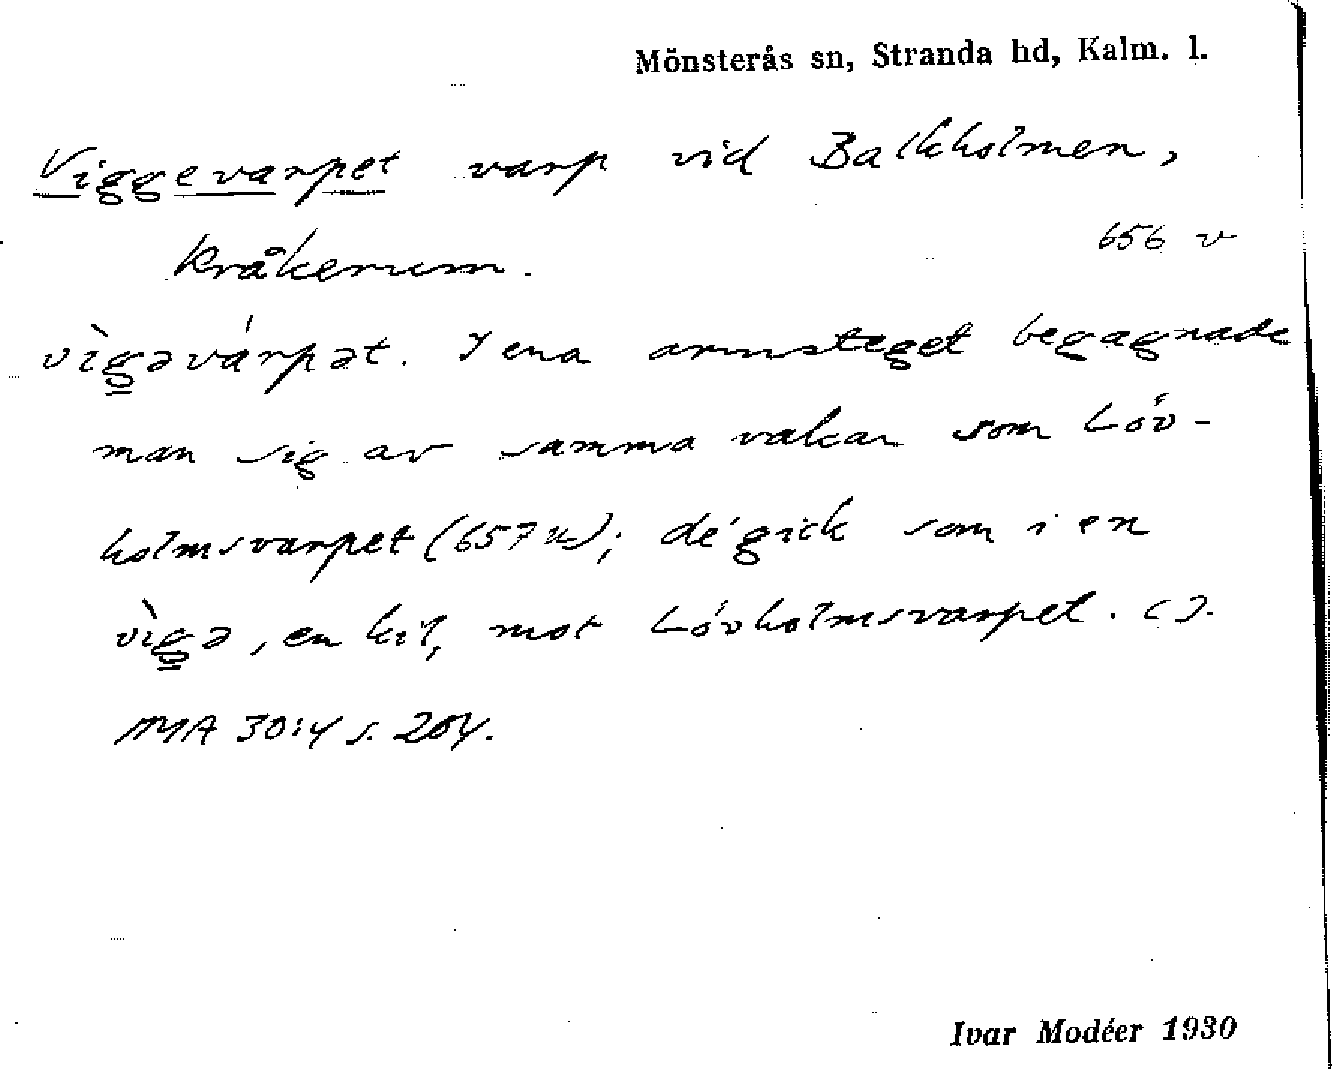 Mönsterås sn, Stranda hd, Kalm. l.
Viggevarpet varp vid Balkholmen,
Kråkerum. 656 v
vìg̳əvárpət. I ena armsteget begagnade
man sig av samma vakar som Löv-
holmsvarpet (657 v); dé gick som i en
vìg̳ə, en kil, mot Lövholmsvarpet. ( ).
MA 30:4 s. 204.
Ivar Modéer 1930